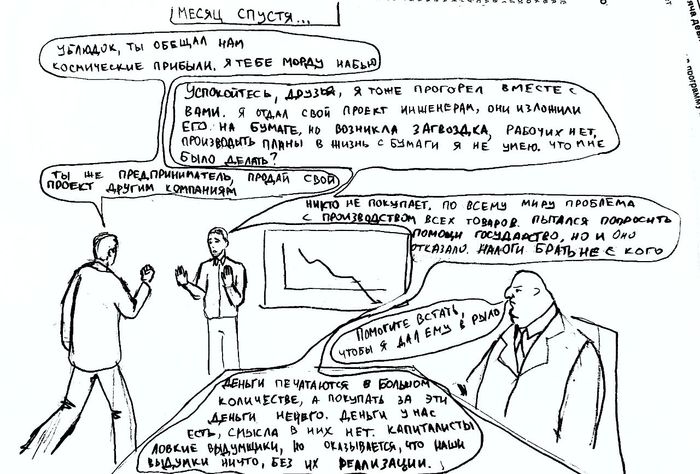 МЕСЯЦ СПУСТЯ...
УБЛЮДОК, ТЫ ОБЕЩАЛ НАМ
КОСМИЧЕСКИЕ ПРИБЫЛИ. Я ТЕБЕ МОРДУ НАБЬЮ
УСПОКОЙТЕСЬ, ДРУЗЬЯ, Я ТОЖЕ ПРОГОРЕЛ ВМЕСТЕ С
ВАМИ. Я ОТДАЛ СВОЙ ПРОЕКТ ИНЖЕНЕРАМ, ОНИ ИЗЛОЖИЛИ
ЕГО НА БУМАГЕ, НО ВОЗНИКЛА ЗАГВОЗДКА, РАБОЧИХ НЕТ,
ПРОИЗВОДИТЬ ПЛАНЫ В ЖИЗНЬ С БУМАГИ Я НЕ УМЕЮ. ЧТО МНЕ
БЫЛО ДЕЛАТЬ?
ТЫ ЖЕ ПРЕДПРИНИМАТЕЛЬ, ПРОДАЙ СВОЙ
ПРОЕКТ ДРУГИМ КОМПАНИЯМ
НИКТО НЕ ПОКУПАЕТ. ПО ВСЕМУ МИРУ ПРОБЛЕМА
С ПРОИЗВОДСТВОМ ВСЕХ ТОВАРОВ. ПЫТАЛСЯ ПОПРОСИТЬ
ПОМОЩИ ГОСУДАРСТВО, НО И ОНО
ОТКАЗАЛО. НАЛОГИ БРАТЬ НЕ С КОГО
ПОМОГИТЕ ВСТАТЬ,
ЧТОБЫ Я ДАЛ ЕМУ В РЫЛО
ДЕНЬГИ ПЕЧАТАЮТСЯ В БОЛЬШОМ
КОЛИЧЕСТВЕ, А ПОКУПАТЬ ЗА ЭТИ
ДЕНЬГИ НЕЧЕГО. ДЕНЬГИ У НАС
ЕСТЬ, СМЫСЛА В НИХ НЕТ. КАПИТАЛИСТЫ
ЛОВКИЕ ВЫДУМЩИКИ, НО ОКАЗЫВАЕТСЯ, ЧТО НАШИ
ВЫДУМКИ НИЧТО, БЕЗ ИХ РЕАЛИЗАЦИИ.